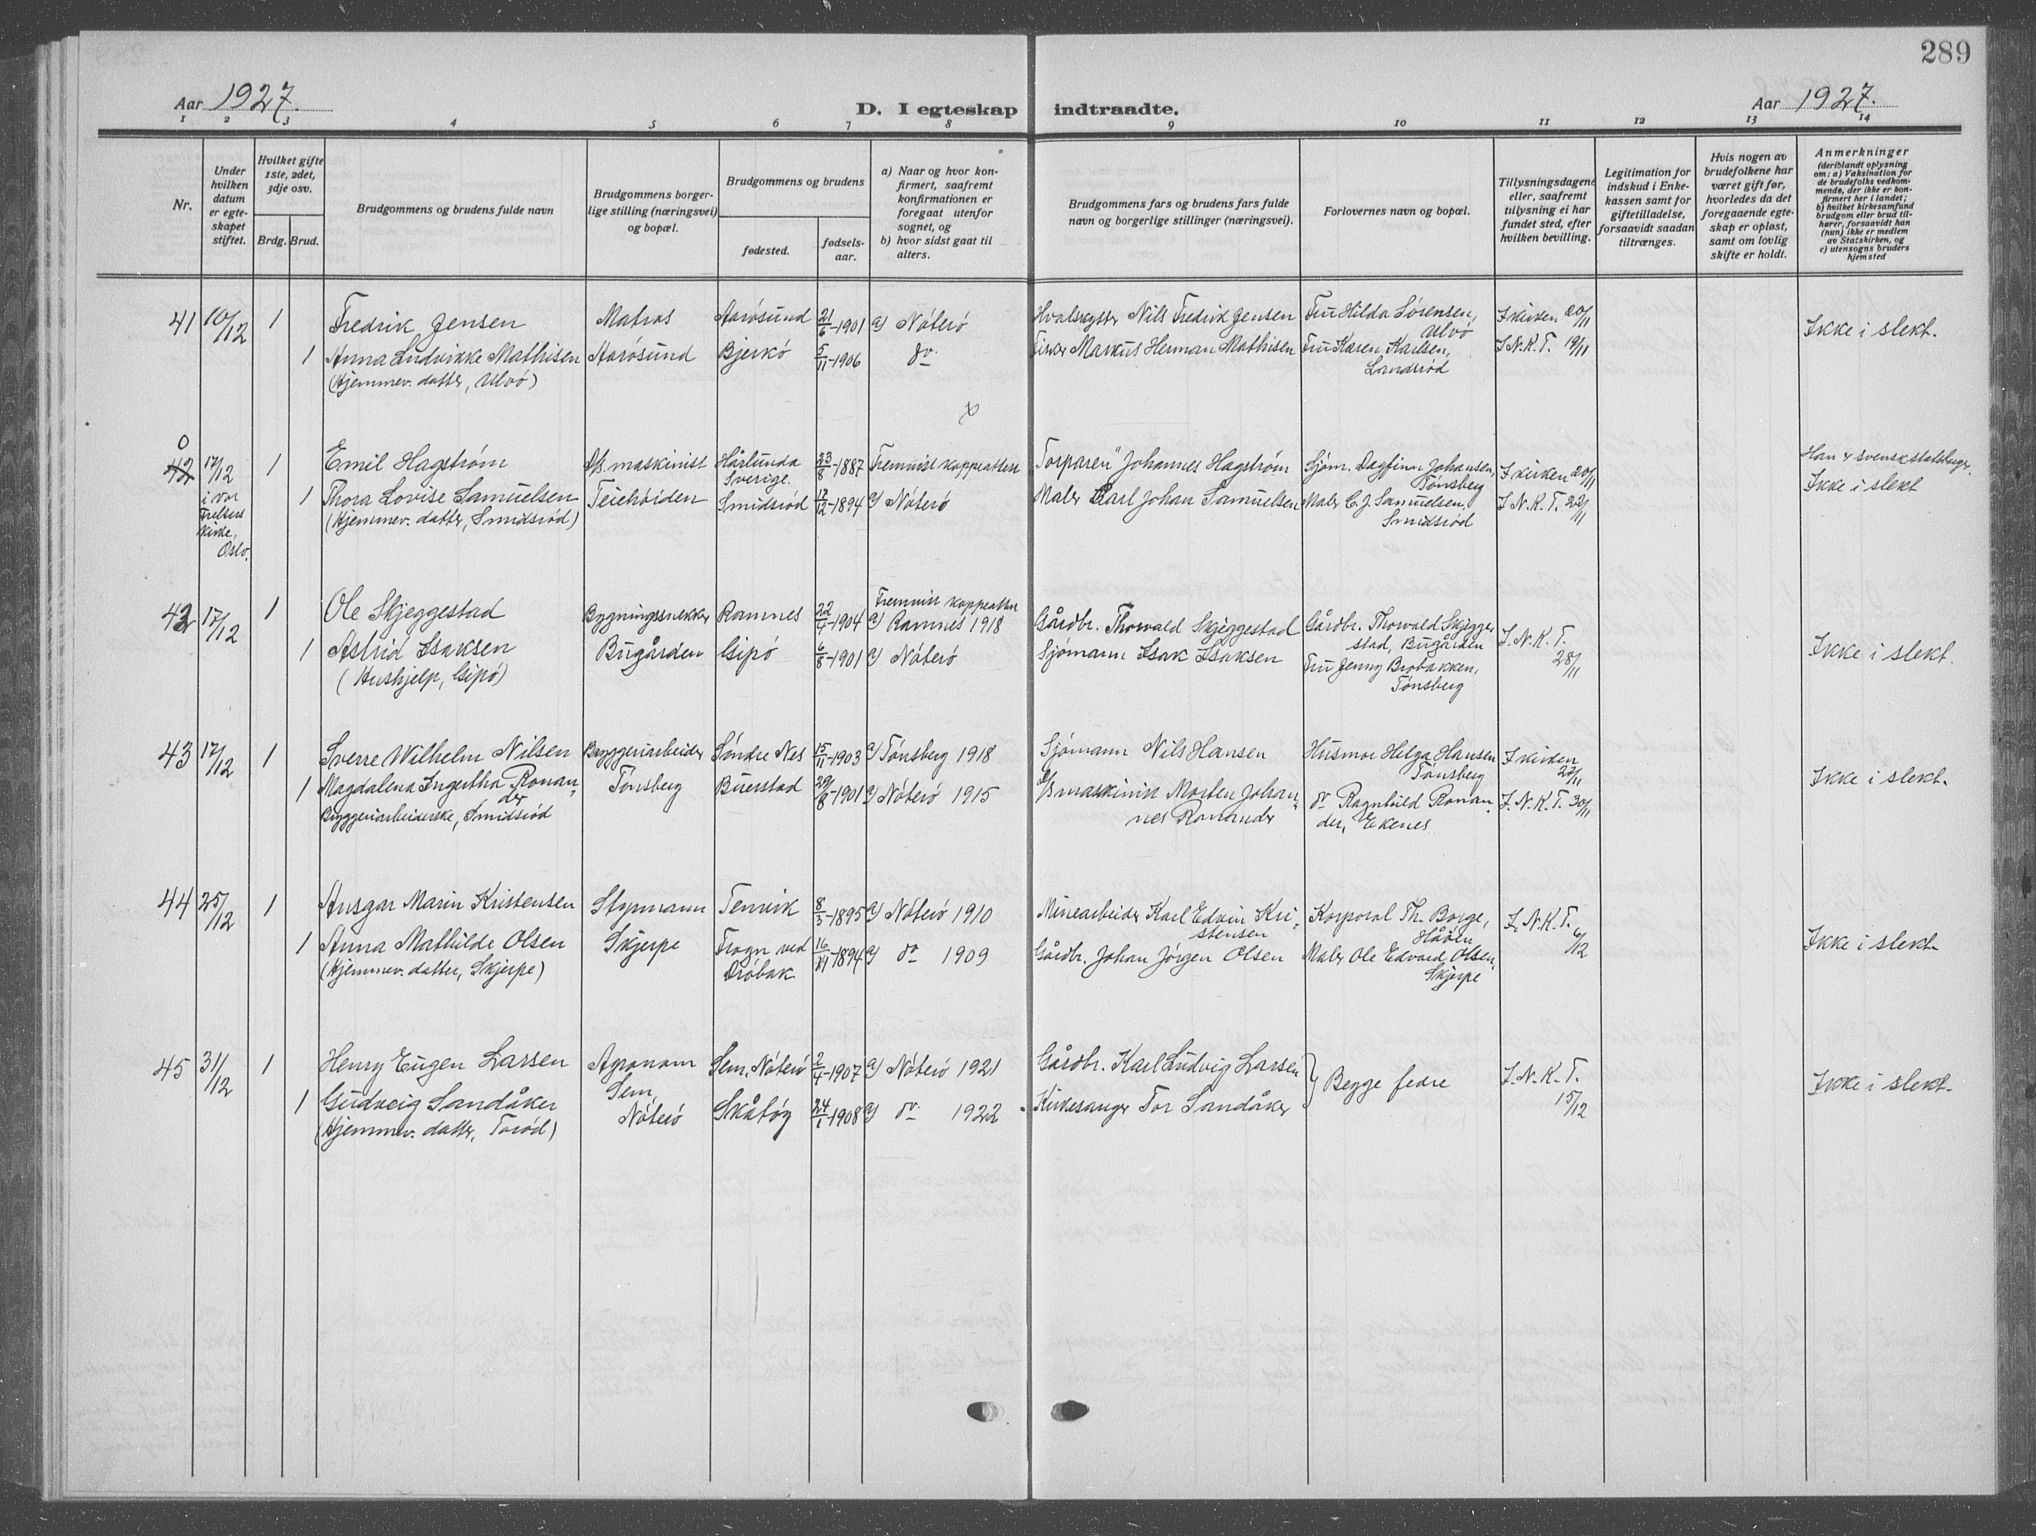 289
Aar 1927.
D. I egteskap indtraadte.
Aar 1927.
1 2 3 4 5 6 7 8 9 10 11 12 13 14
Nr.
Under hvilken datum er egteskapet stiftet.
Hvilket gifte 1ste, 2det, 3dje osv.
Brdg. Brud.
Brudgommens og brudens fulde navn
Brudgommens borgerlige stilling (næringsvei) og bopæl.
Brudgommens og brudens
fødested.
fødselsaar.
a) Naar og hvor konfirmert, saafremt konfirmationen er foregaat utenfor sognet, og
b) hvor sidst gaat til alters.
Brudgommens fars og brudens fars fulde navn og borgerlige stillinger (næringsvei).
Forlovernes navn og bopæl.
Tillysningsdagene eller, saafremt tillysning ei har fundet sted, efter hvilken bevilling.
Legitimation for indskud i Enkekassen samt for giftetilladelse, forsaavidt saadan tiltrænges.
Hvis nogen av brudefolkene har været gift før, hvorledes da det foregaaende egteskap er opløst, samt om lovlig skifte er holdt.
Anmerkninger
(deriblandt oplysning om: a) Vaksination for de brudefolks vedkommende, der ikke er konfirmert her i landet; b) hvilket kirkesamfund brudgom eller brud tilhører, forsaavidt han (hun) ikke er medlem av Statskirken, og c) utensogns bruders hjemsted
41 10/12 1 Fredrik Jensen Matros Aarøsund 21/6-1901 a) Nøterø Hvalskytter Nils Fredrik Jensen Fru Hilda Sørensen, Ulvø I kirken 20/11 Ikke i slekt.
1 Anna Ludvikke Mathisen Aarøsund Bjerkø 5/11-1906 do. Fisker Markus Herman Mathisen Fru Karen Karlsen, Landsrød I.N.K.T. 19/11
(Hjemmev. datter, Ulvø)
42 17/12 1 Emil Hagstrøm D/s. maskinist Hårlunda Sverige. 23/8-1887 Fremvist kopperattest "Torparen" Johannes Hagstrøm Sjøm. Dagfinn Johansen, Tønsberg I kirken 20/11 Han er svensk statsborger.
i Vor Frelsers kirke, Oslo. 1 Thora Lovise Samuelsen Teiehøiden Smidsrød 17/12-1894 a) Nøterø Maler Karl Johan Samuelsen Maler C. J. Samuelsen, Smidsrød I.N.K.T. 22/11 Ikke i slekt
(Hjemmev. datter, Smidsrød)
42 17/12 1 Ole Skjeggestad Bygningssnekker Ramnes 22/4-1904 Fremvist kopperattest a) Ramnes 1918 Gårdbr. Thorvald Skjeggestad Gårdbr. Thorvald Skjeggestad, Bugården I.N.K.T. 28/11
1 Astrid Isaksen Bugården Gipø 6/8-1901 a) Nøterø Sjømann Isak Isaksen Fru Jenny Brobakken, Tønsberg Ikke i slekt.
(Hushjelp, Gipø)
43 17/12 1 Sverre Wilhelm Nilsen Bryggeriarbeider Søndre Nes 15/11-1903 a) Tønsberg 1918 Sjømann Nils Hansen Husmor Helga Hansen Tønsberg I kirken 27/11
1 Magdalena Ingertha Ronander Tønsberg Buerstad 29/8-1901 a) Nøterø 1915 D/s maskinist Morten Johannes Ronander do Ragnhild Ronander, Ekenes I.N.K.T. 30/11 Ikke i slekt.
Bryggeriarbeiderske, Smidsrød
44 25/12 1 Ansgar Marin Kristensen Styrmann Tenvik 8/3-1895 a) Nøterø 1910 Minearbeider Karl Edvin Kristensen Korporal Th. Borge, Håøen I.N.K.T. 6/12
1 Anna Mathilde Olsen Skjerpe Frogn ved Drøbak 16/11-1894 a) do 1909 Gårdbr. Johan Jørgen Olsen Maler Ole Edvard Olsen, Skjerpe Ikke i slekt.
(Hjemmev. datter, Skjerpe)
45 31/12 1 Henry Eugen Larsen Agronom Sem, Nøterø 2/4-1907 a) Nøterø 1921 Gårdbr. Karl Ludvig Larsen } Begge fedre I.N.K.T. 15/12 Ikke i slekt.
1 Gudveig Sandåker Sem, Nøterø Skåtøy 24/1-1908 a) do. 1922 Kirkesanger Tor Sandåker
(Hjemmev. datter, Torød)